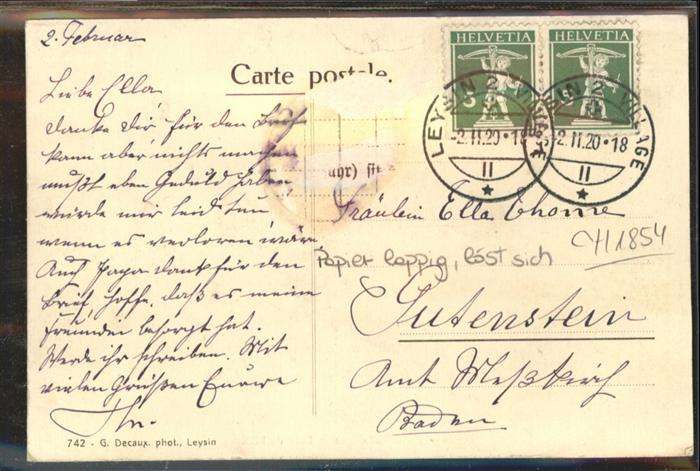 2. Februar
Carte postale.
HELVETIA HELVETIA
5
LEYSIN 2 VILLAGE
-2.II.20·18
II
LEYSIN 2 VILLAGE
-2.II.20·18
II
Liebe Ella
danke dir für den Brief
kann aber nichts machen
mußt eben Geduld haben
würde mir leid tun
wenn es verloren wäre
Auch Papa dankt für den
Brief, hoffe, daß es meine
Freundin besorgt hat.
Werde ihr schreiben. Mit
vielen Grüßen
Fräulein Ella Thome
CH1854
Papier lappig, löst sich
Gutenstein
Amt Meßkirch
Baden
742 - G. Decaux, phot., Leysin